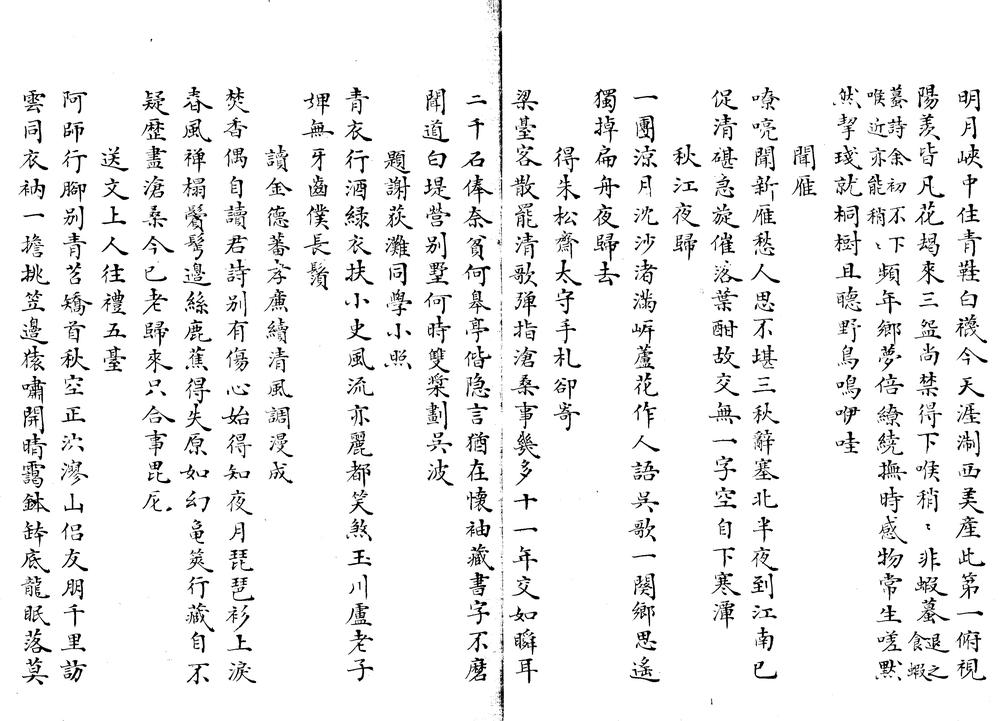 明月峽中住青鞋白襪今天涯淛西美產此第一俯視
陽羨皆凡花朅來三盌尚禁得下喉稍〻非蝦蟇退之食蝦
蟇詩余初不下喉近亦能稍〻頻年鄉夢倍繚繞撫時感物常生嗟默
然挈琖就桐樹且聽野鳥鳴咿哇
聞雁
嘹喨聞新雁愁人思不堪三秋辭塞北半夜到江南已
促清碪急旋催落葉酣故交無一字空自下寒潭
秋江夜歸
一團涼月沈沙渚滿㟁蘆花作人語吳歌一闋鄉思遙
獨掉扁舟夜歸去
得朱松齋太守手札卻寄
梁臺客散罷清歌彈指滄桑事幾多十一年交如瞬耳
二千石俸奈貧何皋亭偕隐言猶在懷袖藏書字不磨
聞道白堤營别墅何時雙槳劃吳波
題謝荻灘同學小照
青衣行酒綠衣扶小史風流亦麗都笑煞玉川盧老子
婢無牙齒僕長鬚
讀金德蕃孝廉續清風調漫成
焚香偶自讀君詩别有傷心始得知夜月琵琶衫上淚
春風禅榻鬢邊絲鹿蕉得失原如幻龟筴行藏自不
疑歷盡滄桑今已老歸來只合事毘尼
送文上人往禮五臺
阿師行腳别青苔矯首秋空正泬漻山侣友朋千里訪
雲同衣衲一擔挑笠邊猿嘯開晴靄鉢底龍眠落莫